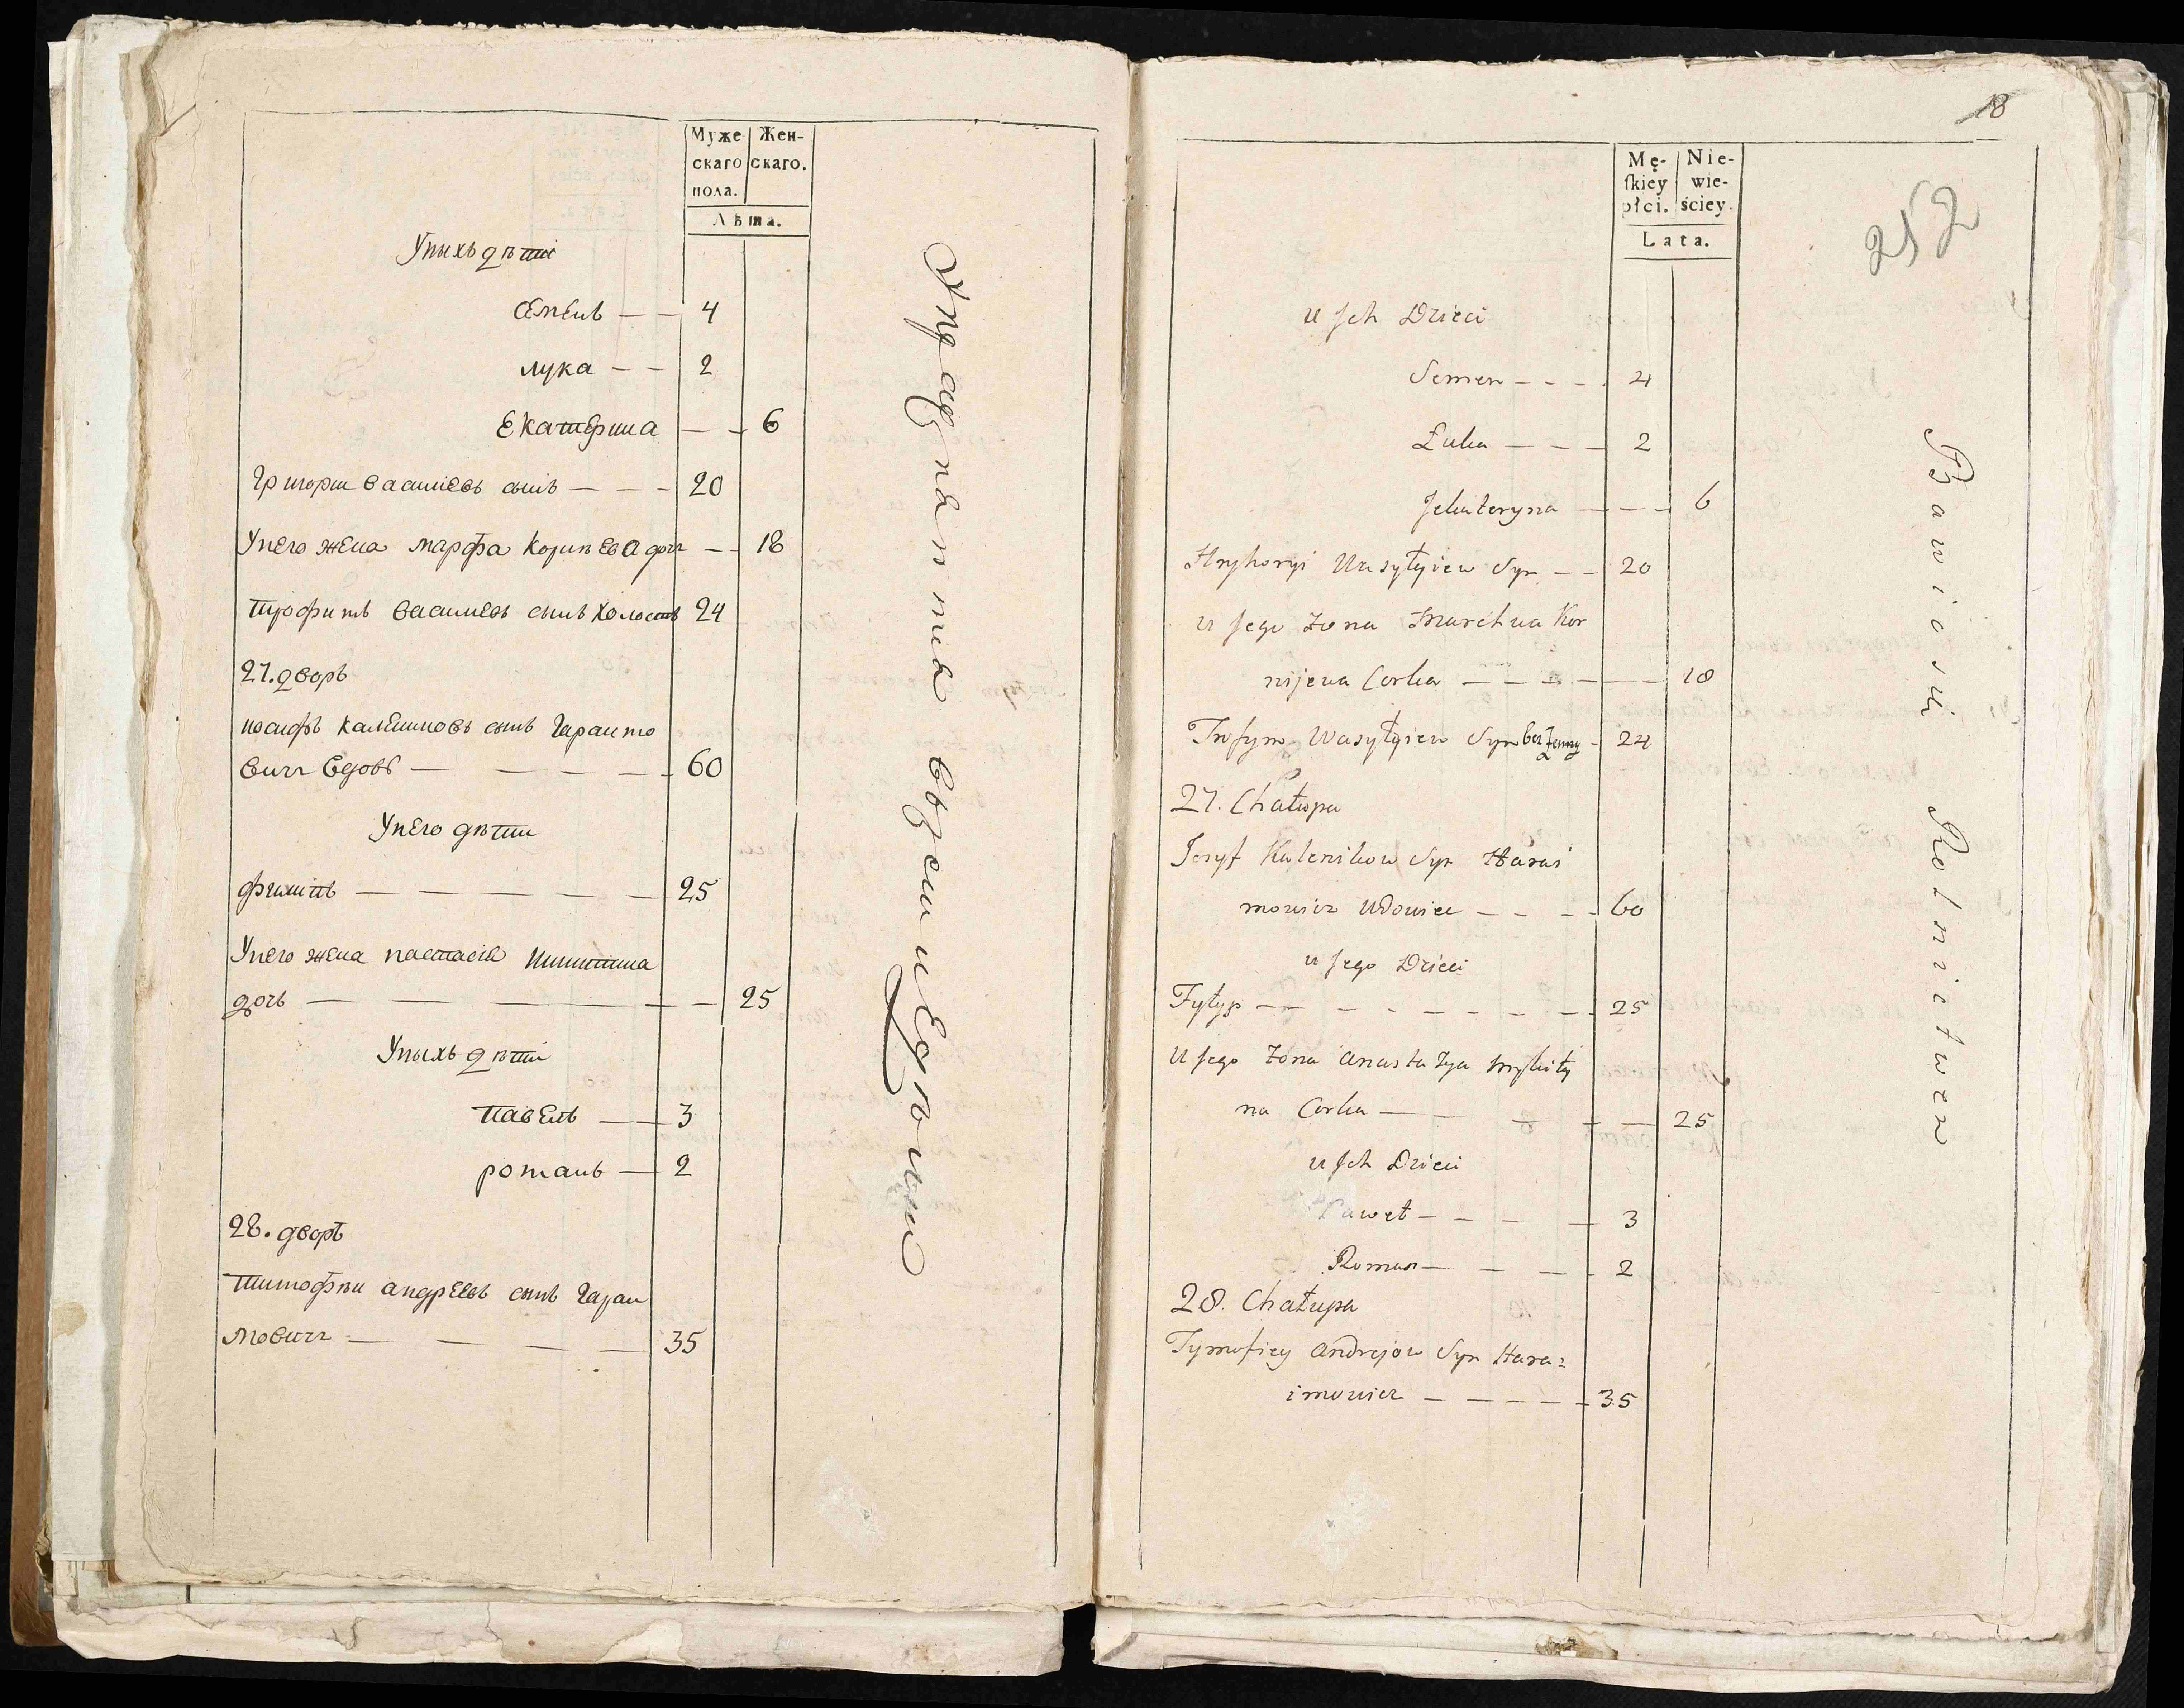 Муже Жен-
скаго скаго.
пола.
Лѣта.
Уныхъ дѣти
Семенъ — — 4
лука — — 2
Екатерина — — 6
Григори василіевъ сынъ — — — 20
Унего жена марфа корнѣева дочь — — 18
трофимъ василиевъ сынъ холостъ 24
27. дворъ
иосифъ калениковъ сынъ Гараимо
вичь вдовъ — — — — — 60
Унего дѣти
филипъ — — — — — 25
Унего жена настасія
дочь — — — — — — 25
Уныхъ дѣти
павелъ — — 3
романъ — 2
28. дворъ
тимофѣи андреевъ сынъ Гараи
мовичь — — — — 35
Упражняется в земледѣлии
18
252
Mę- Nie-
ſkiey wie-
płci. ściey.
Lata.
u Jch Dzieci
Semen — — — 4
Łuka — — — 2
Jekateryna — — — 6
Hryhoryi Wasyłyiew Syn — — 20
u Jego Żona Marchwa Kor
nijewa Corka — — — — — 18
Trofym Wasyłyiew Syn bez Żenny — 24
27. Chałupa
Jozyf Kalenikow Syn Harai
mowicz Udowiec — — — — 60
u Jego Dzieci
Fyłyp — — — — — — — — 25
U Jego Żona Anastazya Mykity
na Corka — — — — — 25
u Jch Dzieci
Paweł — — — — 3
Roman — — — — 2
28. Chałupa
Tymofiey Andrejow Syn Hara=
imowicz — — — — — 35
Bawią się Rolnictwem